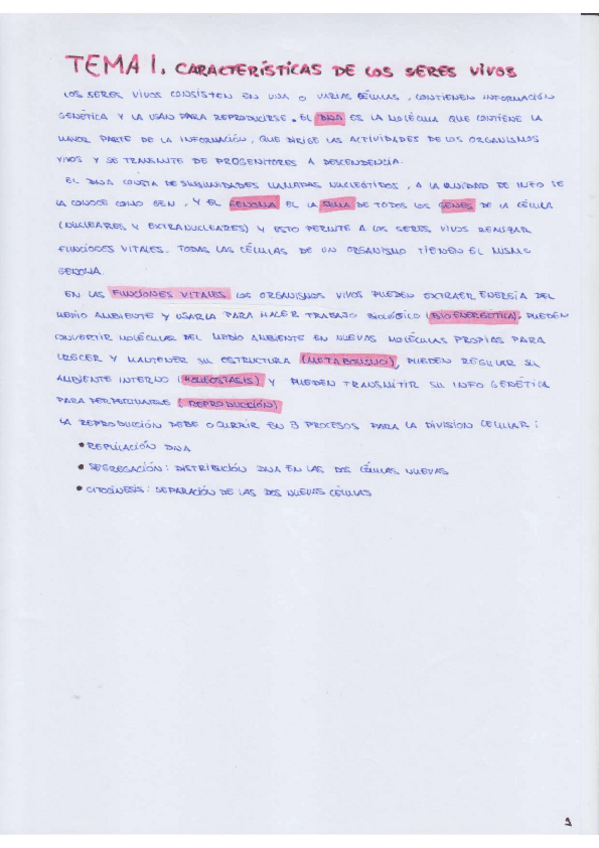 TEMA 1. CARACTERÍSTICAS DE LOS SERES VIVOS
LOS SERES VIVOS CONSISTEN EN UNA O VARIAS CÉLULAS, CONTIENEN INFORMACIÓN
GENÉTICA Y LA USAN PARA REPRODUCIRSE. EL DNA ES LA MOLÉCULA QUE CONTIENE LA
MAYOR PARTE DE LA INFORMACIÓN, QUE DIRIGE LAS ACTIVIDADES DE LOS ORGANISMOS
VIVOS Y SE TRANSMITE DE PROGENITORES A DESCENDENCIA.
EL DNA CONSTA DE SUBUNIDADES LLAMADAS NUCLEÓTIDOS, A LA UNIDAD DE INFO SE
LA CONOCE COMO GEN, Y EL GENOMA EL LA SUMA DE TODOS LOS GENES DE LA CÉLULA
(NUCLEARES Y EXTRANUCLEARES) Y ESTO PERMITE A LOS SERES VIVOS REALIZAR
FUNCIONES VITALES. TODAS LAS CÉLULAS DE UN ORGANISMO TIENEN EL MISMO
GENOMA.
EN LAS FUNCIONES VITALES LOS ORGANISMOS VIVOS PUEDEN EXTRAER ENERGÍA DEL
MEDIO AMBIENTE Y USARLA PARA HACER TRABAJO BIOLÓGICO (BIOENERGÉTICA), PUEDEN
CONVERTIR MOLÉCULAR DEL MEDIO AMBIENTE EN NUEVAS MOLÉCULAS PROPIAS PARA
CRECER Y MANTENER SU ESTRUCTURA (METABOLISMO), PUEDEN REGULAR SU
AMBIENTE INTERNO (HOMEOSTASIS) Y PUEDEN TRANSMITIR SU INFO GENÉTICA
PARA PERPETUARSE (REPRODUCCIÓN)
LA REPRODUCCIÓN DEBE OCURRIR EN 3 PROCESOS PARA LA DIVISION CELULAR:
• REPLICACIÓN DNA
• SEGREGACIÓN: DISTRIBUCIÓN DNA EN LAS DOS CÉLULAS NUEVAS
• CITOCINESIS: SEPARACIÓN DE LAS DOS NUEVAS CÉLULAS
1